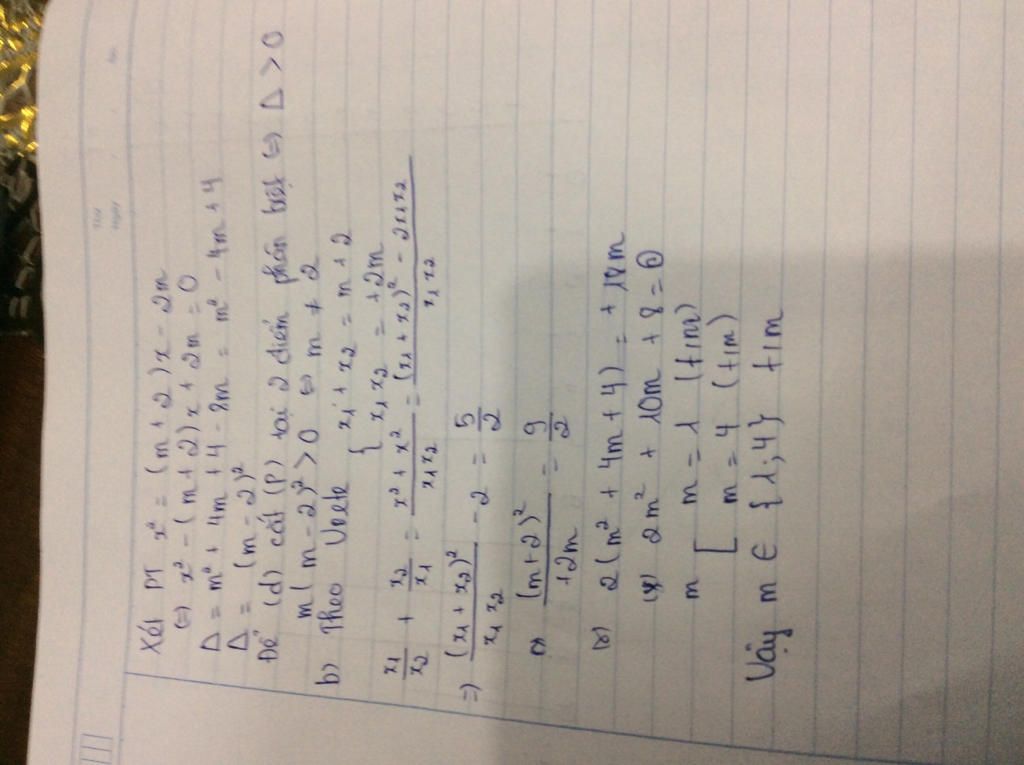 Thứ
Ngày
No.
Xét PT x² = (m + 2)x - 2m
(=) x² - (m + 2)x + 2m = 0
Δ = m² + 4m + 4 - 8m = m² - 4m + 4
Δ = (m - 2)²
Để (d) cắt (P) tại 2 điểm phân biệt (=) Δ > 0
m(m - 2)² > 0 (=) m ≠ 2
b) Theo Viete { x1 + x2 = m + 2
x1 x2 = +2m
x1/x2 + x2/x1 = x² + x²/x1x2 = (x1 + x2)² - 2x1x2/x1 x2
=) (x1 + x2)²/x1 x2 - 2 = 5/2
(m + 2)²/+2m = 9/2
2(m² + 4m + 4) = + 18m
2m² + 10m + 8 = 0
m [ m = 1 (t1m)
m = 4 (t1m)
Vậy m ∈ {1;4} t1m